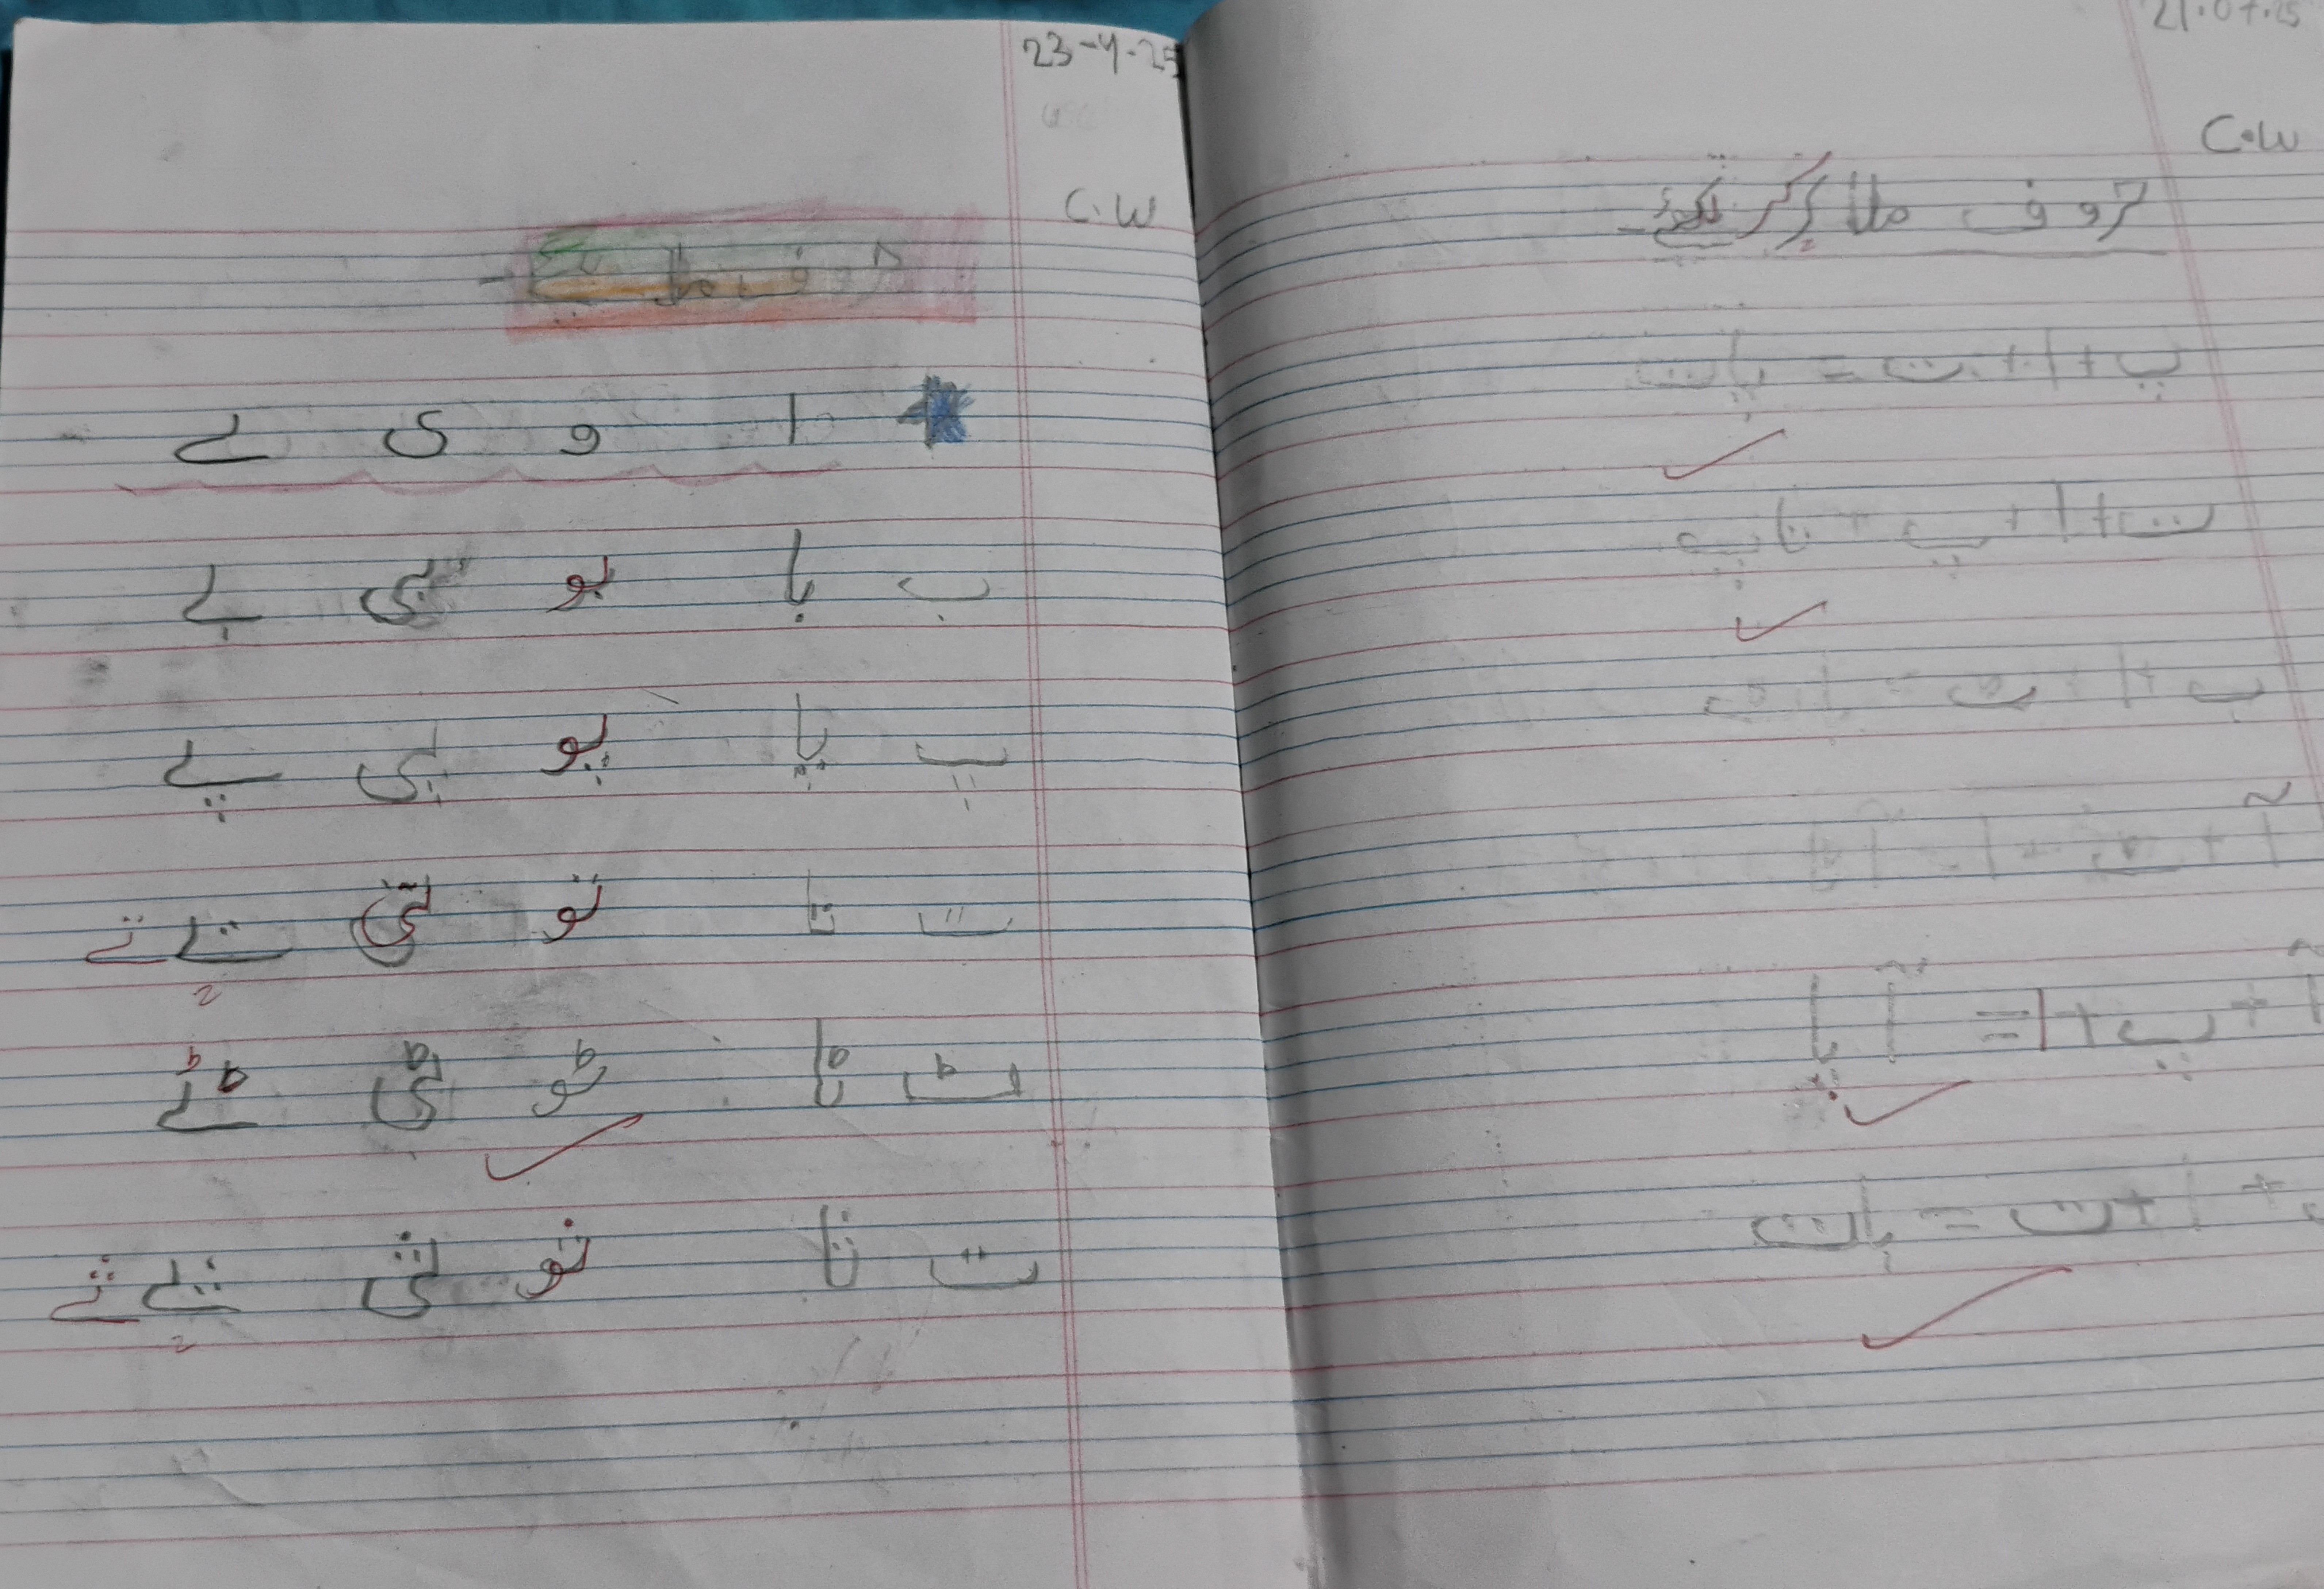 23-4-25
C.W
حروف ملایئے -
+ ا و ی ے
ب با بو بی بے
پ پا پو پی پے
ت تا تو تی تے تے
ٹ ٹا ٹو ٹی ٹے
ت ثا ثو ثی ثے ثے
21.07.25
C.W
حروف ملا کر لکھئے-
پ + ا + ت = پات
ت + ا + پ = تاپ
ب + ا + ٹ = باٹ
آ + ٹ + ا = آٹا
آ + پ + ا = آپا
+ ا + ت = بات